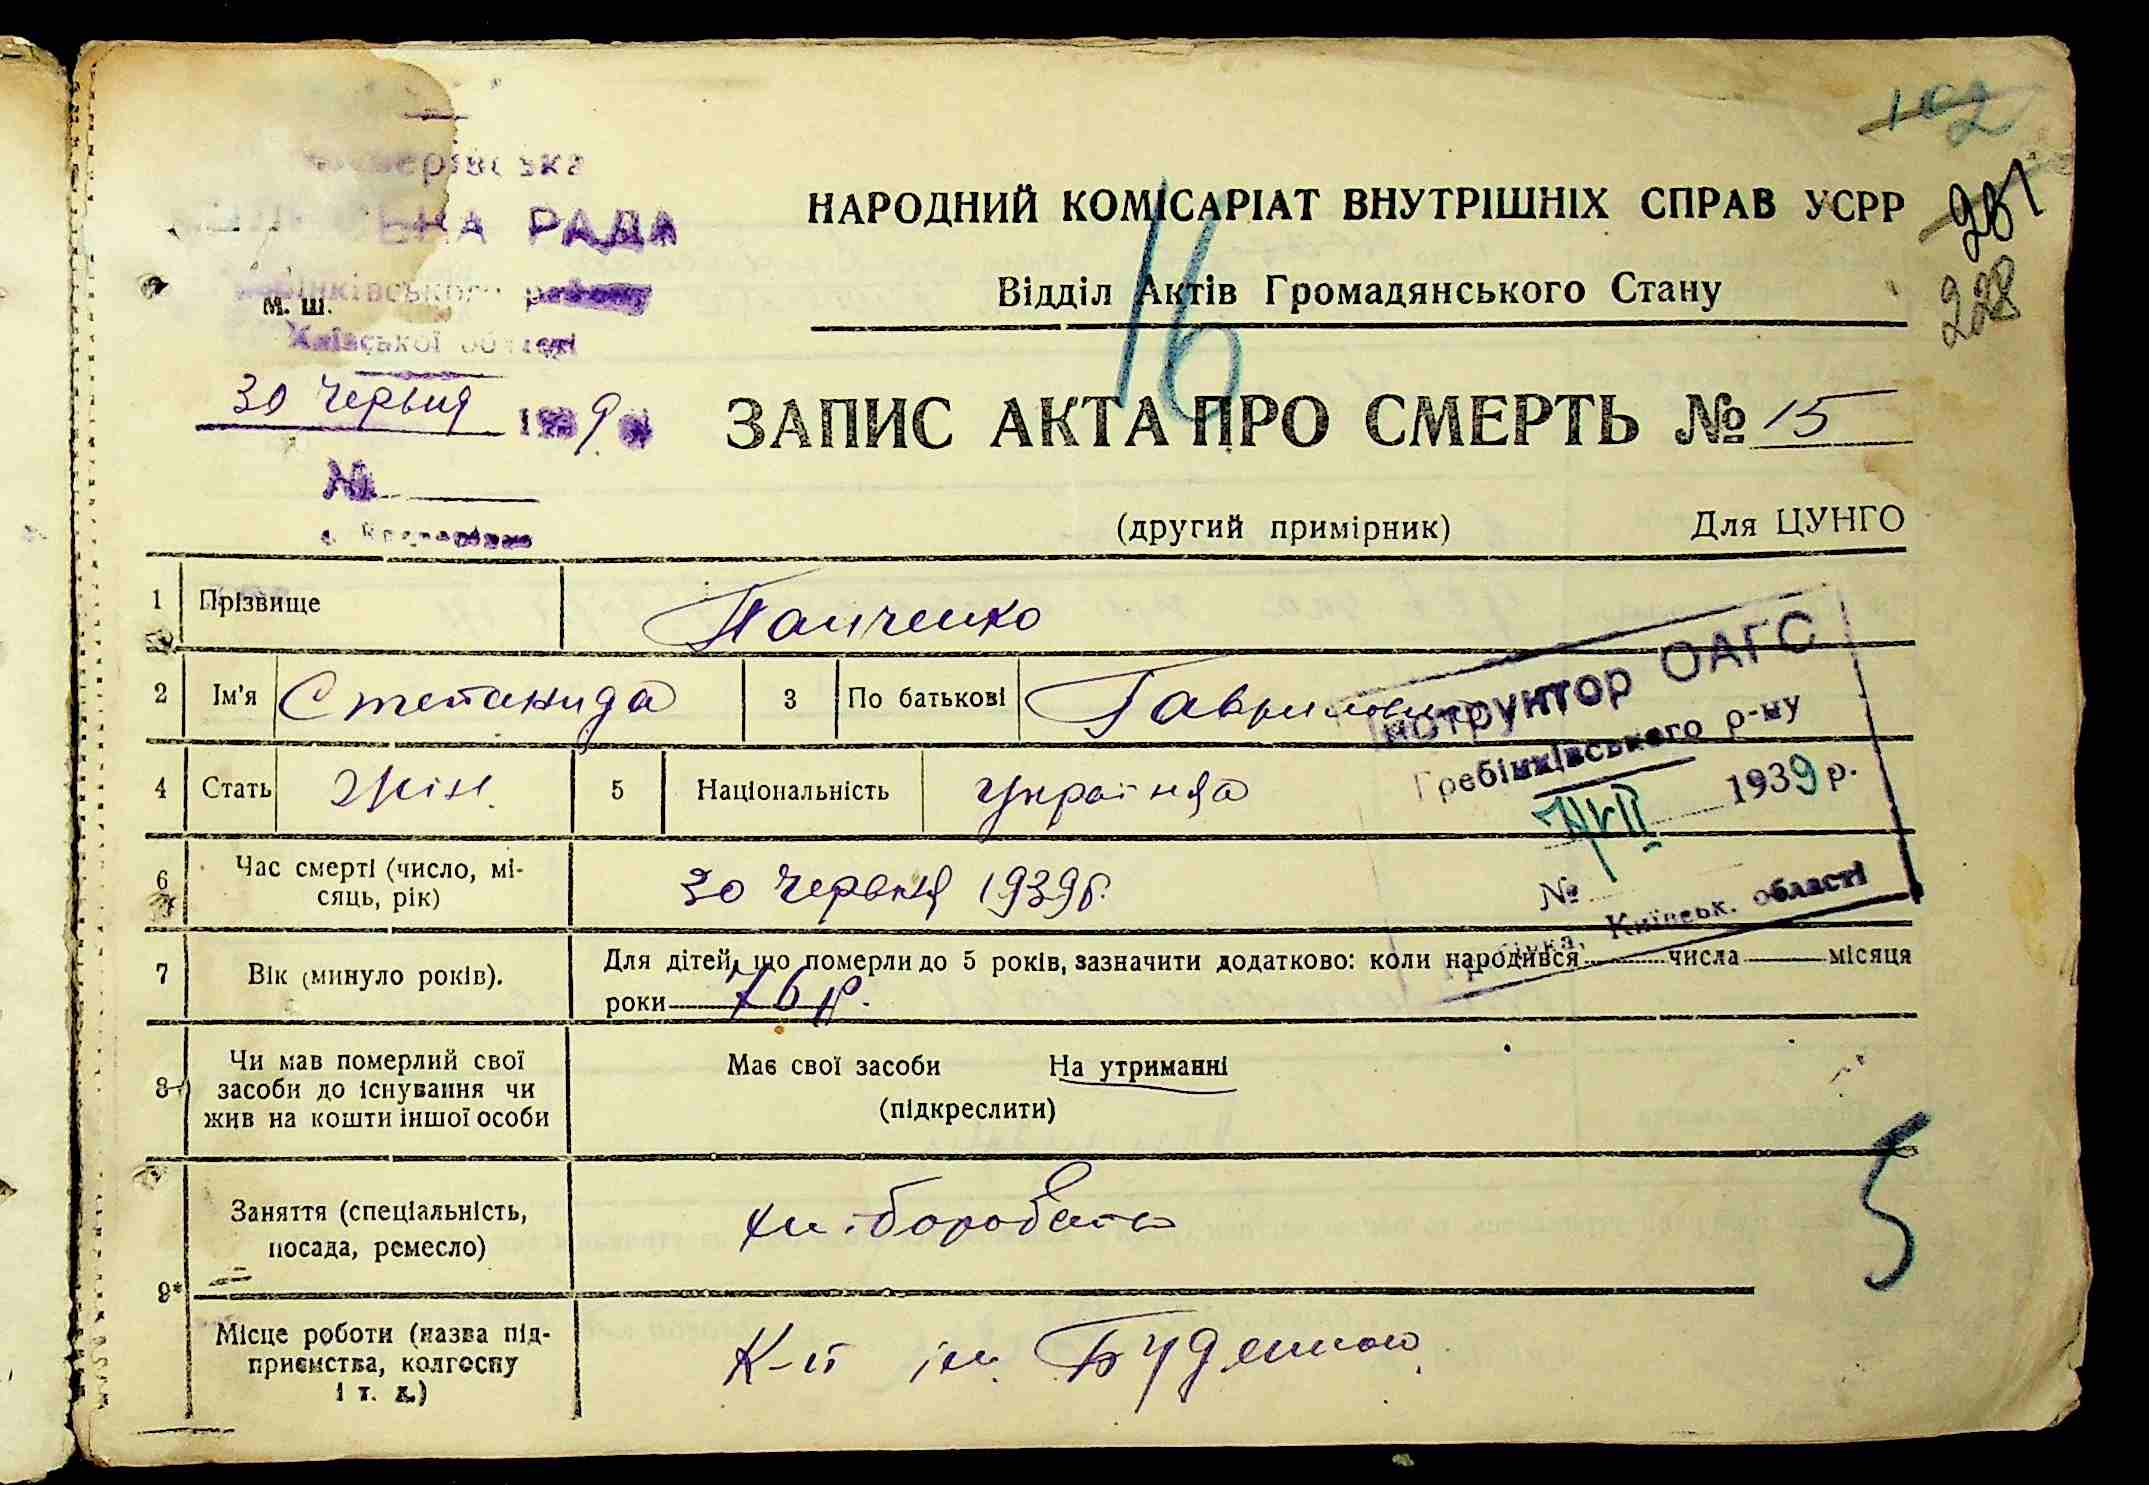 102
РАДА
району
М. Ш.
Київської області
30 червня 1939 р.
№
НАРОДНИЙ КОМІСАРІАТ ВНУТРІШНІХ СПРАВ УСРР
228
Відділ Актів Громадянського Стану
16
ЗАПИС АКТА ПРО СМЕРТЬ № 15
(другий примірник) Для ЦУНГО
1 Прізвище Панченко
2 Ім'я Степанида 3 По батькові Гавриловна
Інструктор ОАГС
Гребінківського р-ну
1939 р.
№
Київськ. області
4 Стать жін. 5 Національність Українка
6 Час смерті (число, мі-
сяць, рік) 30 червня 1939 р.
7 Вік (минуло років). Для дітей, що померли до 5 років, зазначити додатково: коли народився числа місяця
роки 76 р.
8 Чи мав померлий свої
засоби до існування чи
жив на кошти іншої особи
Має свої засоби На утриманні
(підкреслити)
5
9*
Заняття (спеціальність,
посада, ремесло)
Місце роботи (назва під-
приємства, колгоспу
і т. д.)
К-п ім. Буденного